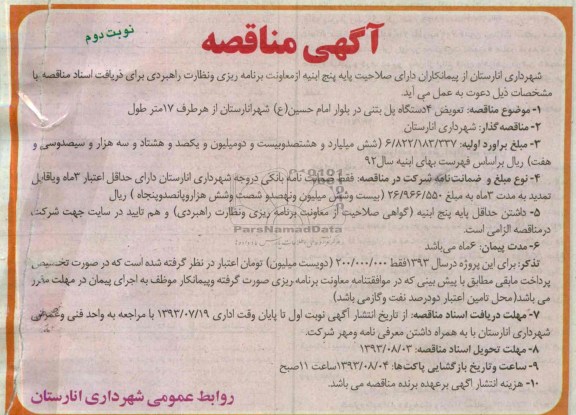 آگهی مناقصه
نوبت دوم
شهرداری انارستان از پیمانکاران دارای صلاحیت پایه پنج ابنیه ازمعاونت برنامه ریزی ونظارت راهبردی برای دریافت اسناد مناقصه با
مشخصات ذیل دعوت به عمل می آید.
۱- موضوع مناقصه: تعویض ۴دستگاه پل بتنی در بلوار امام حسین(ع) شهرانارستان از هرطرف ۱۷متر طول
۲- مناقصه گذار: شهرداری انارستان
۳- مبلغ براورد اولیه: ۶/۸۲۲/۱۸۳/۳۳۷ (شش میلیارد و هشتصدوبیست و دومیلیون و یکصد و هشتاد و سه هزار و سیصدوسی و
هفت) ریال براساس فهرست بهای ابنیه سال۹۲
۴- نوع مبلغ و ضمانت‌نامه شرکت در مناقصه: فقط ضمانت نامه بانکی دروجه شهرداری انارستان دارای حداقل اعتبار ۳ماه وباقابل
تمدید به مدت ۳ماه به مبلغ ۲۶/۹۶۶/۵۵۰ (بیست وشش میلیون ونهصدو شصت وشش هزاروپانصدوپنجاه ) ریال
۵- داشتن حداقل پایه پنج ابنیه (گواهی صلاحیت از معاونت برنامه ریزی ونظارت راهبردی) و هم تایید در سایت جهت شرکت
درمناقصه الزامی است.
ParsNamadData
۶- مدت پیمان: ۶ماه می‌باشد
تذکر: برای این پروژه درسال ۱۳۹۳فقط ۲۰۰/۰۰۰/۰۰۰ (دویست میلیون) تومان اعتبار در نظر گرفته شده است که در صورت تخصیص
پرداخت مابقی مطابق با پیش بینی که در موافقتنامه معاونت برنامه ریزی صورت گرفته وپیمانکار موظف به اجرای پیمان در مهلت مقرر
می باشد(محل تامین اعتبار دودرصد نفت وگازمی باشد)
۷- مهلت دریافت اسناد مناقصه: از تاریخ انتشار آگهی نوبت اول تا پایان وقت اداری ۱۳۹۳/۰۷/۱۹ با مراجعه به واحد فنی وعمرانی
شهرداری انارستان با به همراه داشتن معرفی نامه ومهر شرکت.
۸- مهلت تحویل اسناد مناقصه: ۱۳۹۳/۰۸/۰۳
۹- ساعت وتاریخ بازگشایی پاکت‌ها: ۱۳۹۳/۰۸/۰۴ساعت ۱۱صبح
۱۰- هزینه انتشار آگهی برعهده برنده مناقصه می باشد.
روابط عمومی شهرداری انارستان